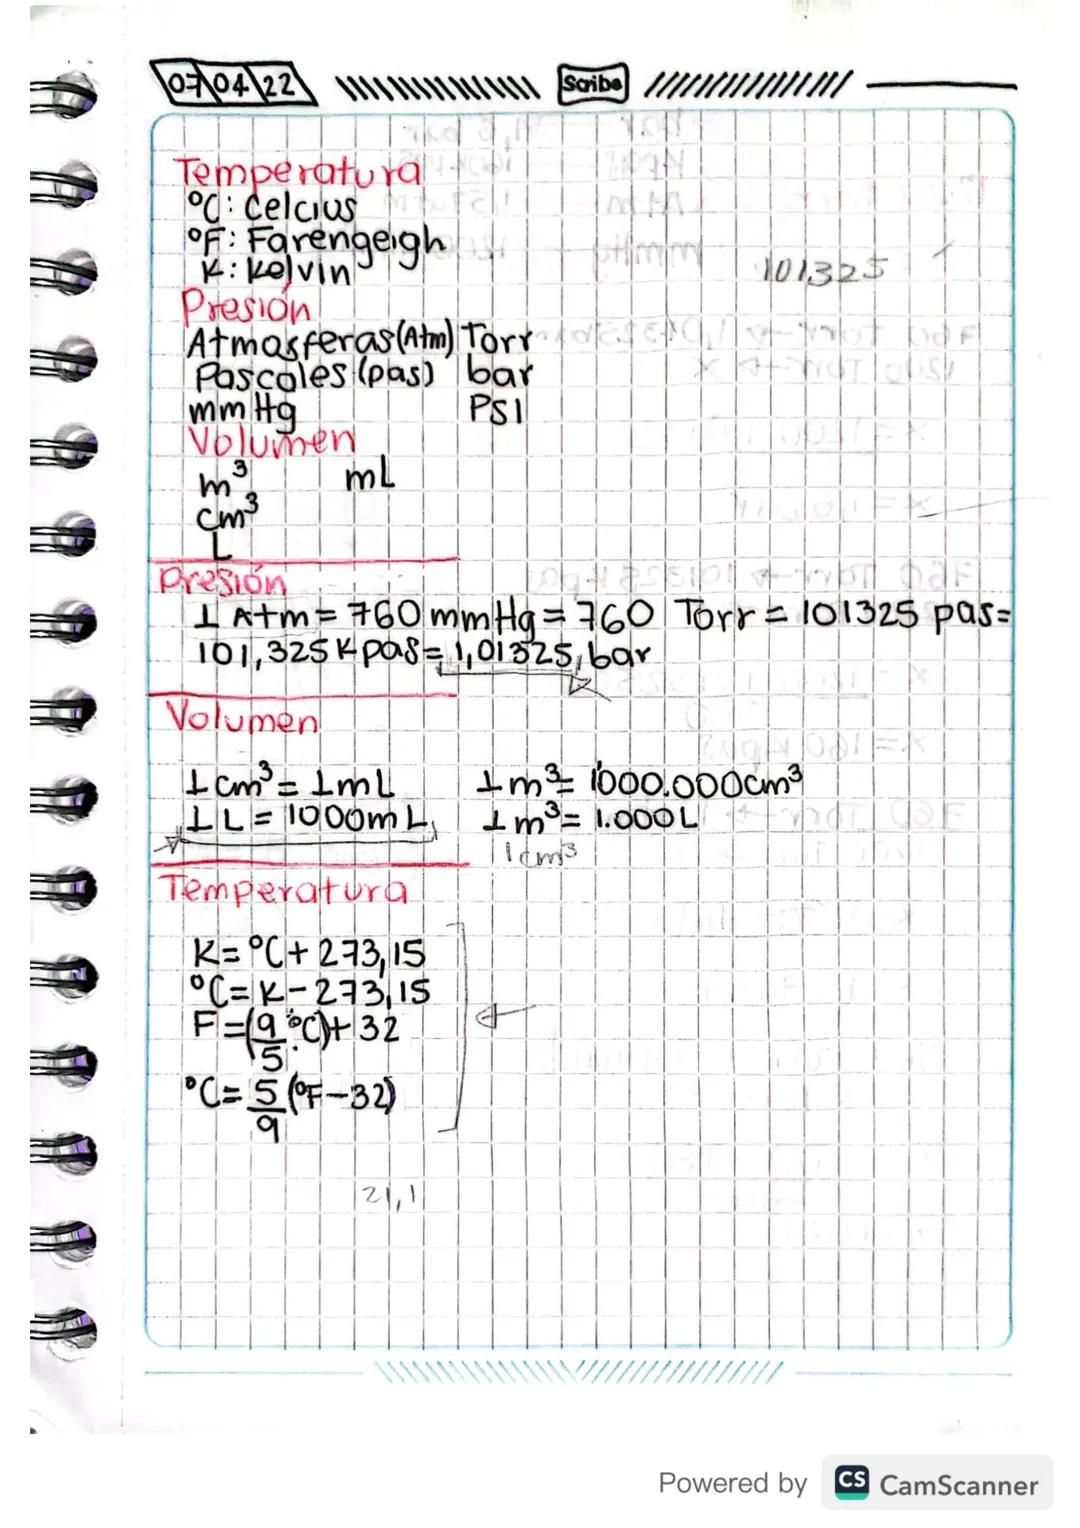 07 04 22 Scribe
Temperatura
°C: Celcius
°F: Farengeigh
K: Kelvin
101,325
Presión
Atmosferas (Atm) Torr
Pascales (pas) bar
mmHg PSI
Volumen
m³ mL
cm³
L
Presión
1 Atm = 760 mmHg = 760 Torr = 101325 pas=
101,325 Kpas = 1,01325 bar
Volumen
1 cm³ = 1mL 1 m³ = 1000.000cm³
1 L = 1000mL 1 m³ = 1.000L
1 cm³
Temperatura
K= °C + 273,15
°C= K - 273,15
F = (9/5 · °C) + 32
°C= 5/9 (°F-32)
21,1
Powered by CS CamScanner